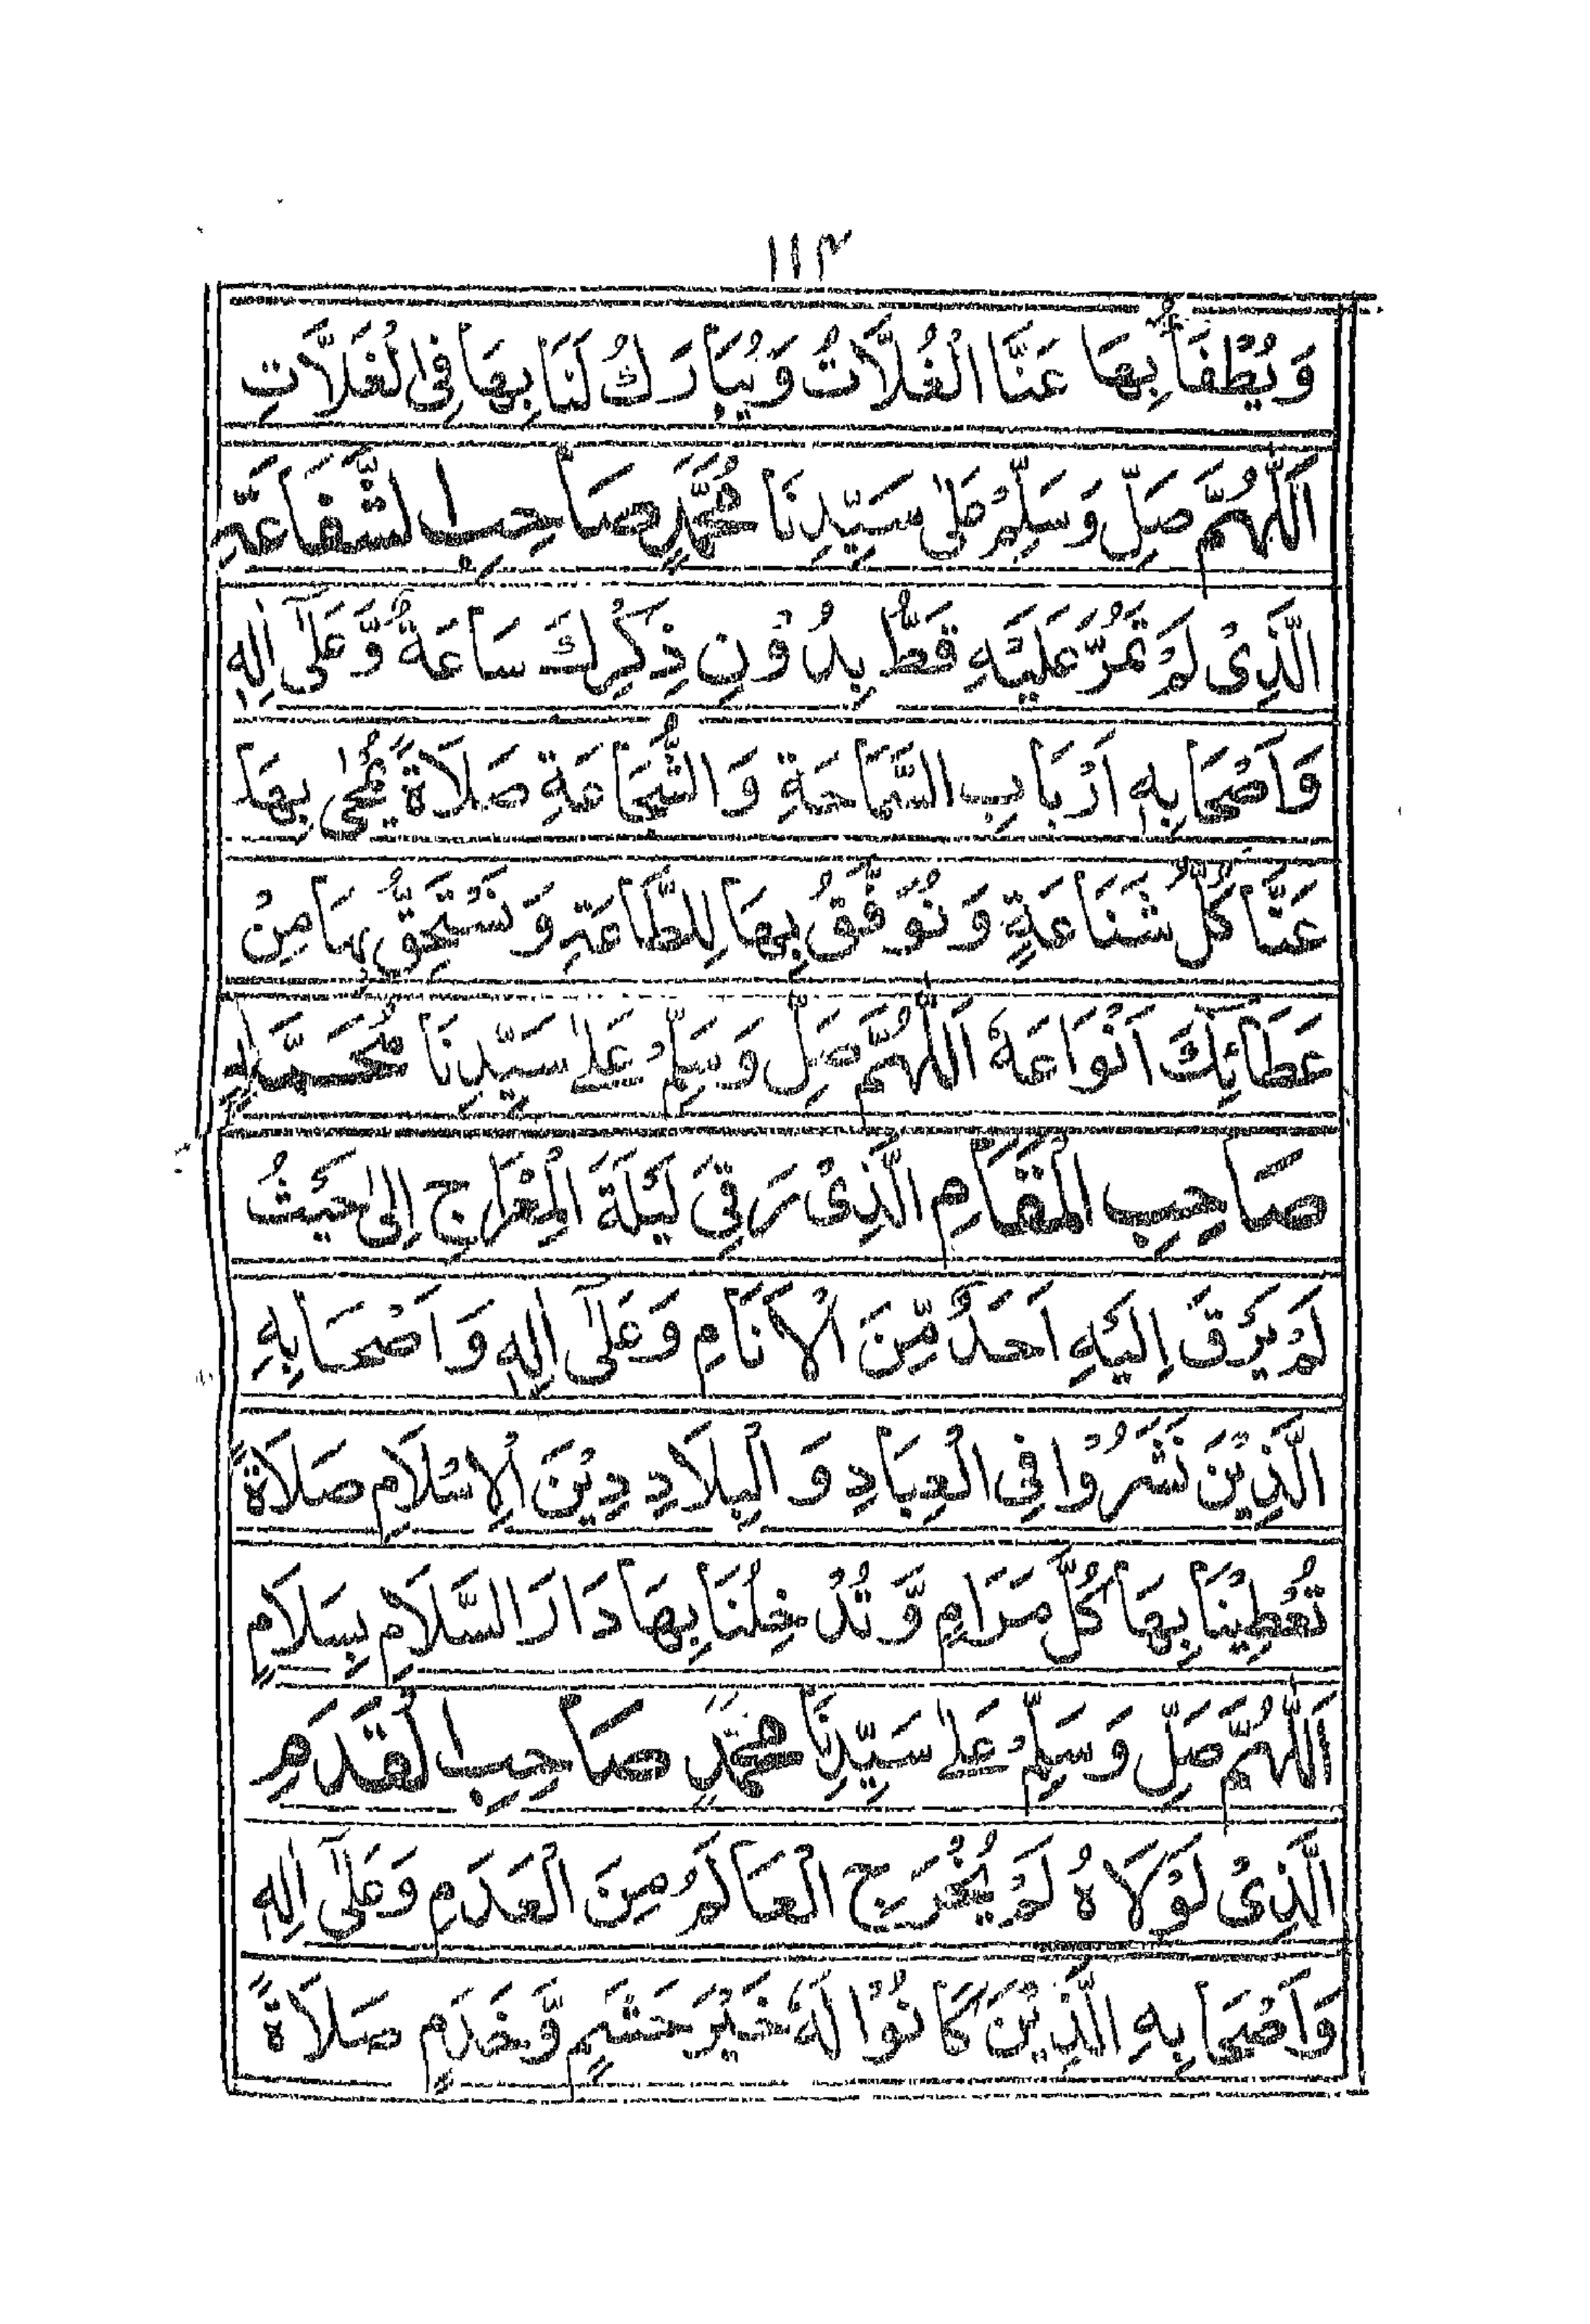 ١١٣
وَيُطْفَأُ بِهَا عَنَّا الْغُلَّاتُ وَيُبَارَكُ لَنَا بِهَا فِي الْغَلَّاتِ
اَللّٰهُمَّ صَلِّ وَسَلِّمْ عَلٰى سَيِّدِنَا مُحَمَّدٍ صَاحِبِ الشَّفَاعَةِ
الَّذِيْ لَمْ تَمُرَّ عَلَيْهِ قَطُّ بِدُوْنِ ذِكْرِكَ سَاعَةٌ وَّعَلٰٓى اٰلِهٖ
وَاَصْحَابِهٖ اَرْبَابِ السَّمَاحَةِ وَالشُّجَاعَةِ صَلَاةً يُمْحٰى بِهَا
عَنَّا كُلُّ شَنَاعَةٍ وَنُوَفَّقُ بِهَا لِلطَّاعَةِ وَنَسْتَحِقُّ بِهَا مِنْ
عَطَائِكَ اَنْوَاعَهٗ اَللّٰهُمَّ صَلِّ وَسَلِّمْ عَلٰى سَيِّدِنَا مُحَمَّدٍ
صَاحِبِ الْمَقَامِ الَّذِيْ رَقِيَ لَيْلَةَ الْمِعْرَاجِ اِلٰى حَيْثُ
لَمْ يَرْقَ اِلَيْهِ اَحَدٌ مِّنَ الْاَنَامِ وَعَلٰٓى اٰلِهٖ وَاَصْحَابِهِ
الَّذِيْنَ نَشَرُوْا فِي الْعِبَادِ وَالْبِلَادِ دِيْنَ الْاِسْلَامِ صَلَاةً
تُعْطِيْنَا بِهَا كُلَّ مَرَامٍ وَّتُدْخِلُنَا بِهَا دَارَ السَّلَامِ بِسَلَامٍ
اَللّٰهُمَّ صَلِّ وَسَلِّمْ عَلٰى سَيِّدِنَا مُحَمَّدٍ صَاحِبِ الْقَدَمِ
الَّذِيْ لَوْلَاهُ لَمْ يُخْرَجِ الْعَالَمُ مِنَ الْعَدَمِ وَعَلٰٓى اٰلِهٖ
وَاَصْحَابِهِ الَّذِيْنَ كَانُوْا لَهٗ خَيْرَ حَشَمٍ وَّخَدَمٍ صَلَاةً